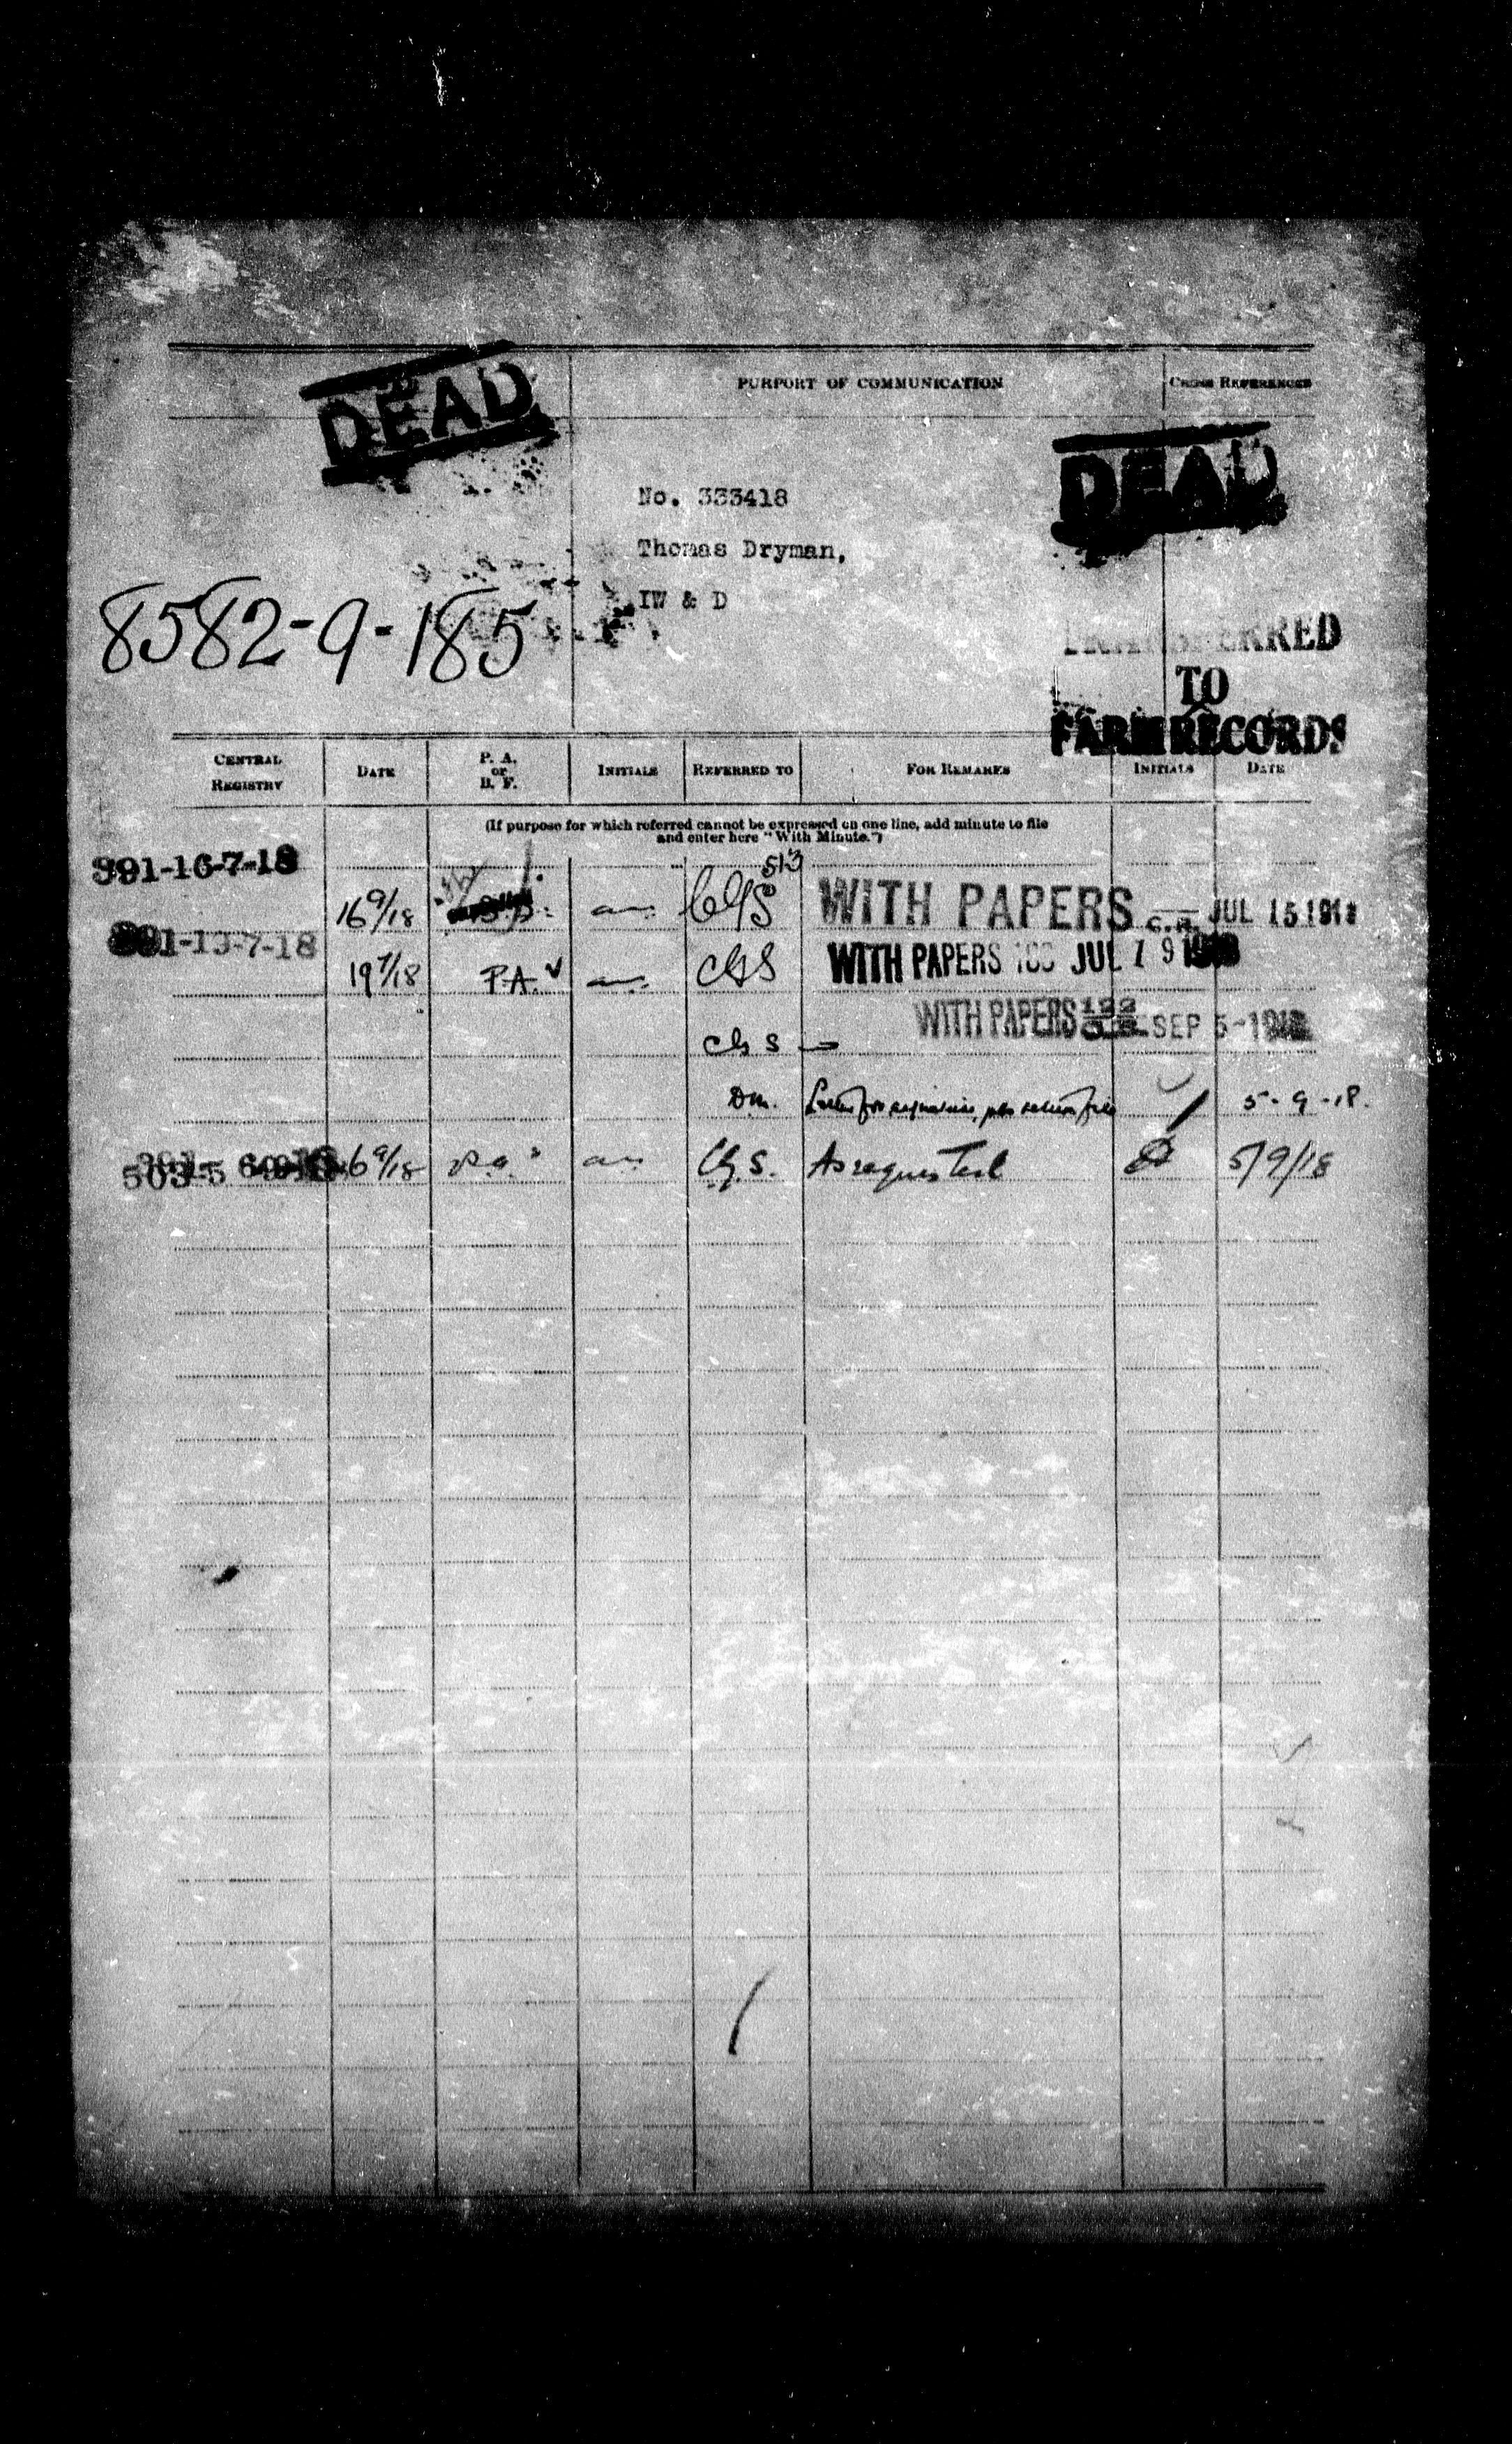 DEAD
PURPORT OF COMMUNICATION
CROSS REFERENCES
DEAD
No. 333418
Thomas Dryman,
IW & D
8582-9-185
TRANSFERRED
TO
FARM RECORDS
CENTRAL REGISTRY
DATE
P. A. or B. F.
INITIALS
REFERRED TO
FOR REMARKS
INITIALS
DATE
(If purpose for which referred cannot be expressed on one line, add minute to file
and enter here "With Minute.")
391-16-7-18
513
16 9/18
WITH PAPERS C.R. JUL 15 1918
391-19-7-18
19 7/18 P.A. CGS WITH PAPERS JUL 19 1918
WITH PAPERS SEP 5-1918
CGS
Dm. 5-9-18.
6 9/18 P.A. CG.S. As requested 5/9/18